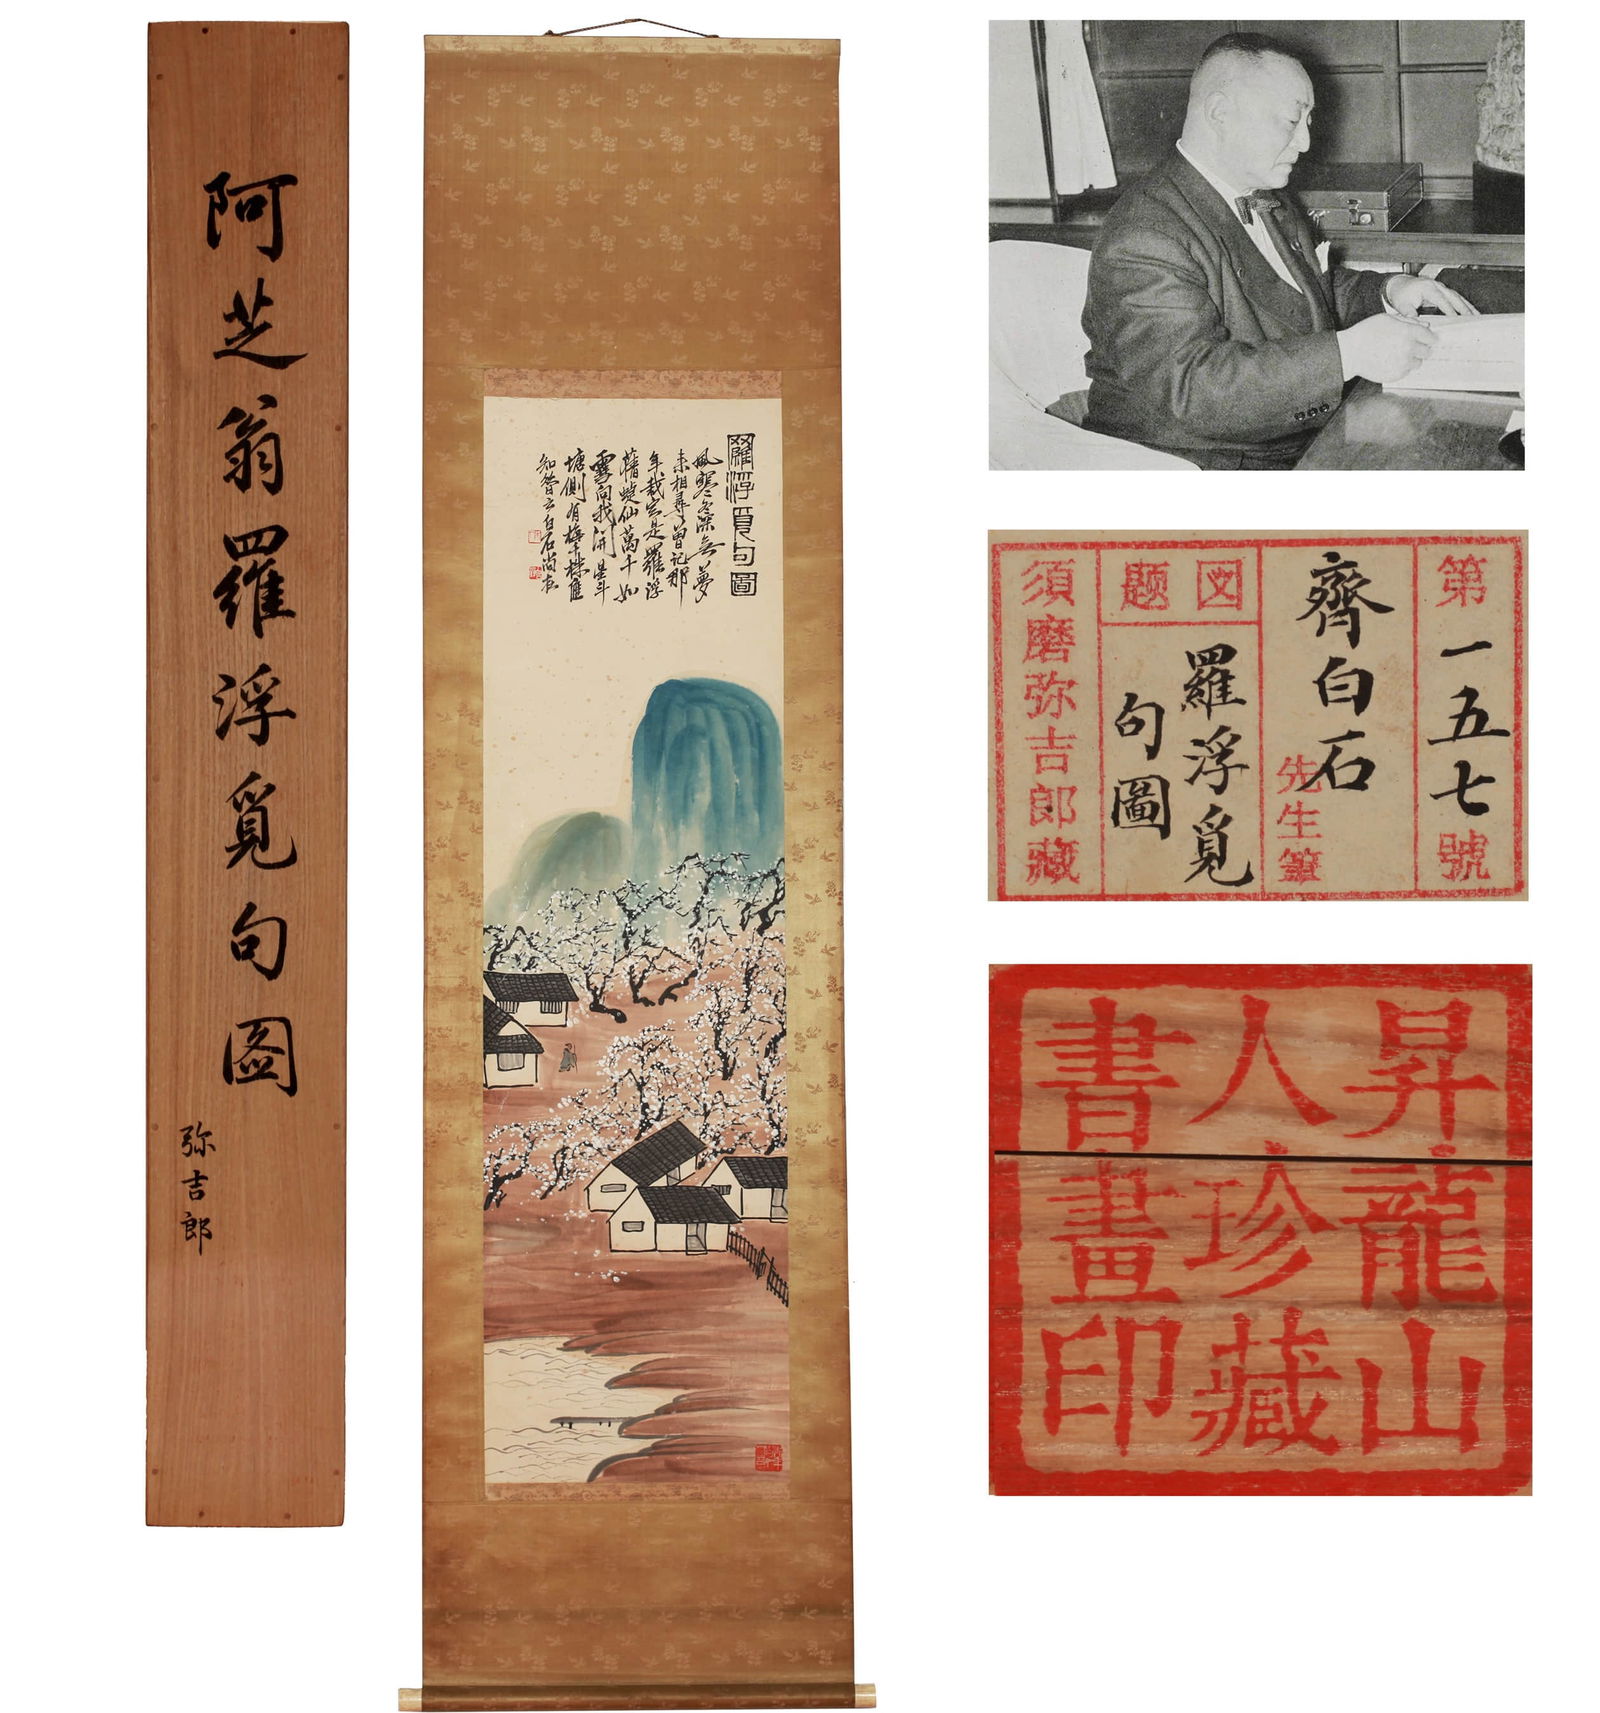 阿芝翁羅浮覓句圖
弥吉郎
羅浮覓句圖
風寒冬深無夢
未相尋曾記那
年栽宗是羅浮
蝶仙萬千如
雪向我開星斗
塘側有梅千株
知警云白石尚在
第一五七號
齊白石先生筆
図題
羅浮覓
句圖
須磨弥吉郎藏
昇龍山
人珍藏
書畫印